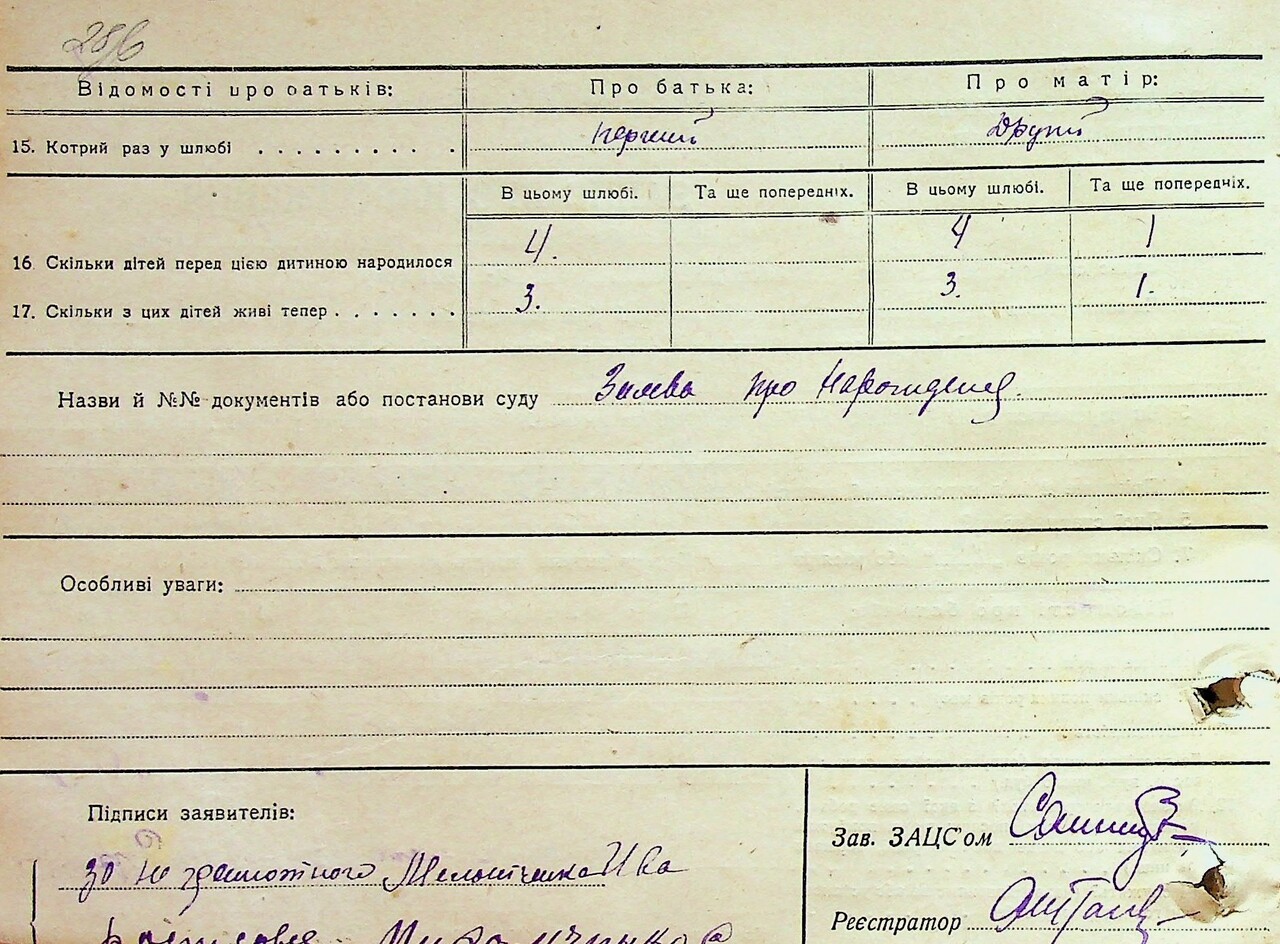 286
Відомості про батьків: Про батька: Про матір:
15. Котрий раз у шлюбі . . . . . . . . . . перший другий
В цьому шлюбі. Та ще попередніх. В цьому шлюбі. Та ще попередніх.
16 Скільки дітей перед цією дитиною народилося 4. 4 1
17. Скільки з цих дітей живі тепер . . . . . . . 3. 3. 1.
Назви й №№ документів або постанови суду Заява про народження.
Особливі уваги:
Підписи заявителів:
Зав. ЗАЦС'ом
за не грамотного Мельніченка Ива
Реєстратор